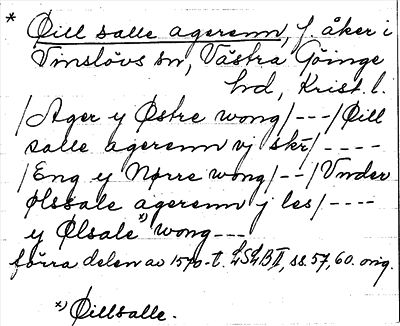 * Øill salle agerenn, f. åker i
Vinslövs sn, Västra Göinge
hd, Krist. l.
/Ager y Østre wong/---/Øill
salle agerenn vj skr/----
/Eng y Nørre wong/--/Vnder
ølssale agerenn j les/----
y Ølsale*) wong---
förra delen av 1570-t. LSLB II, ss. 57, 60. orig.
*) Øillsalle.